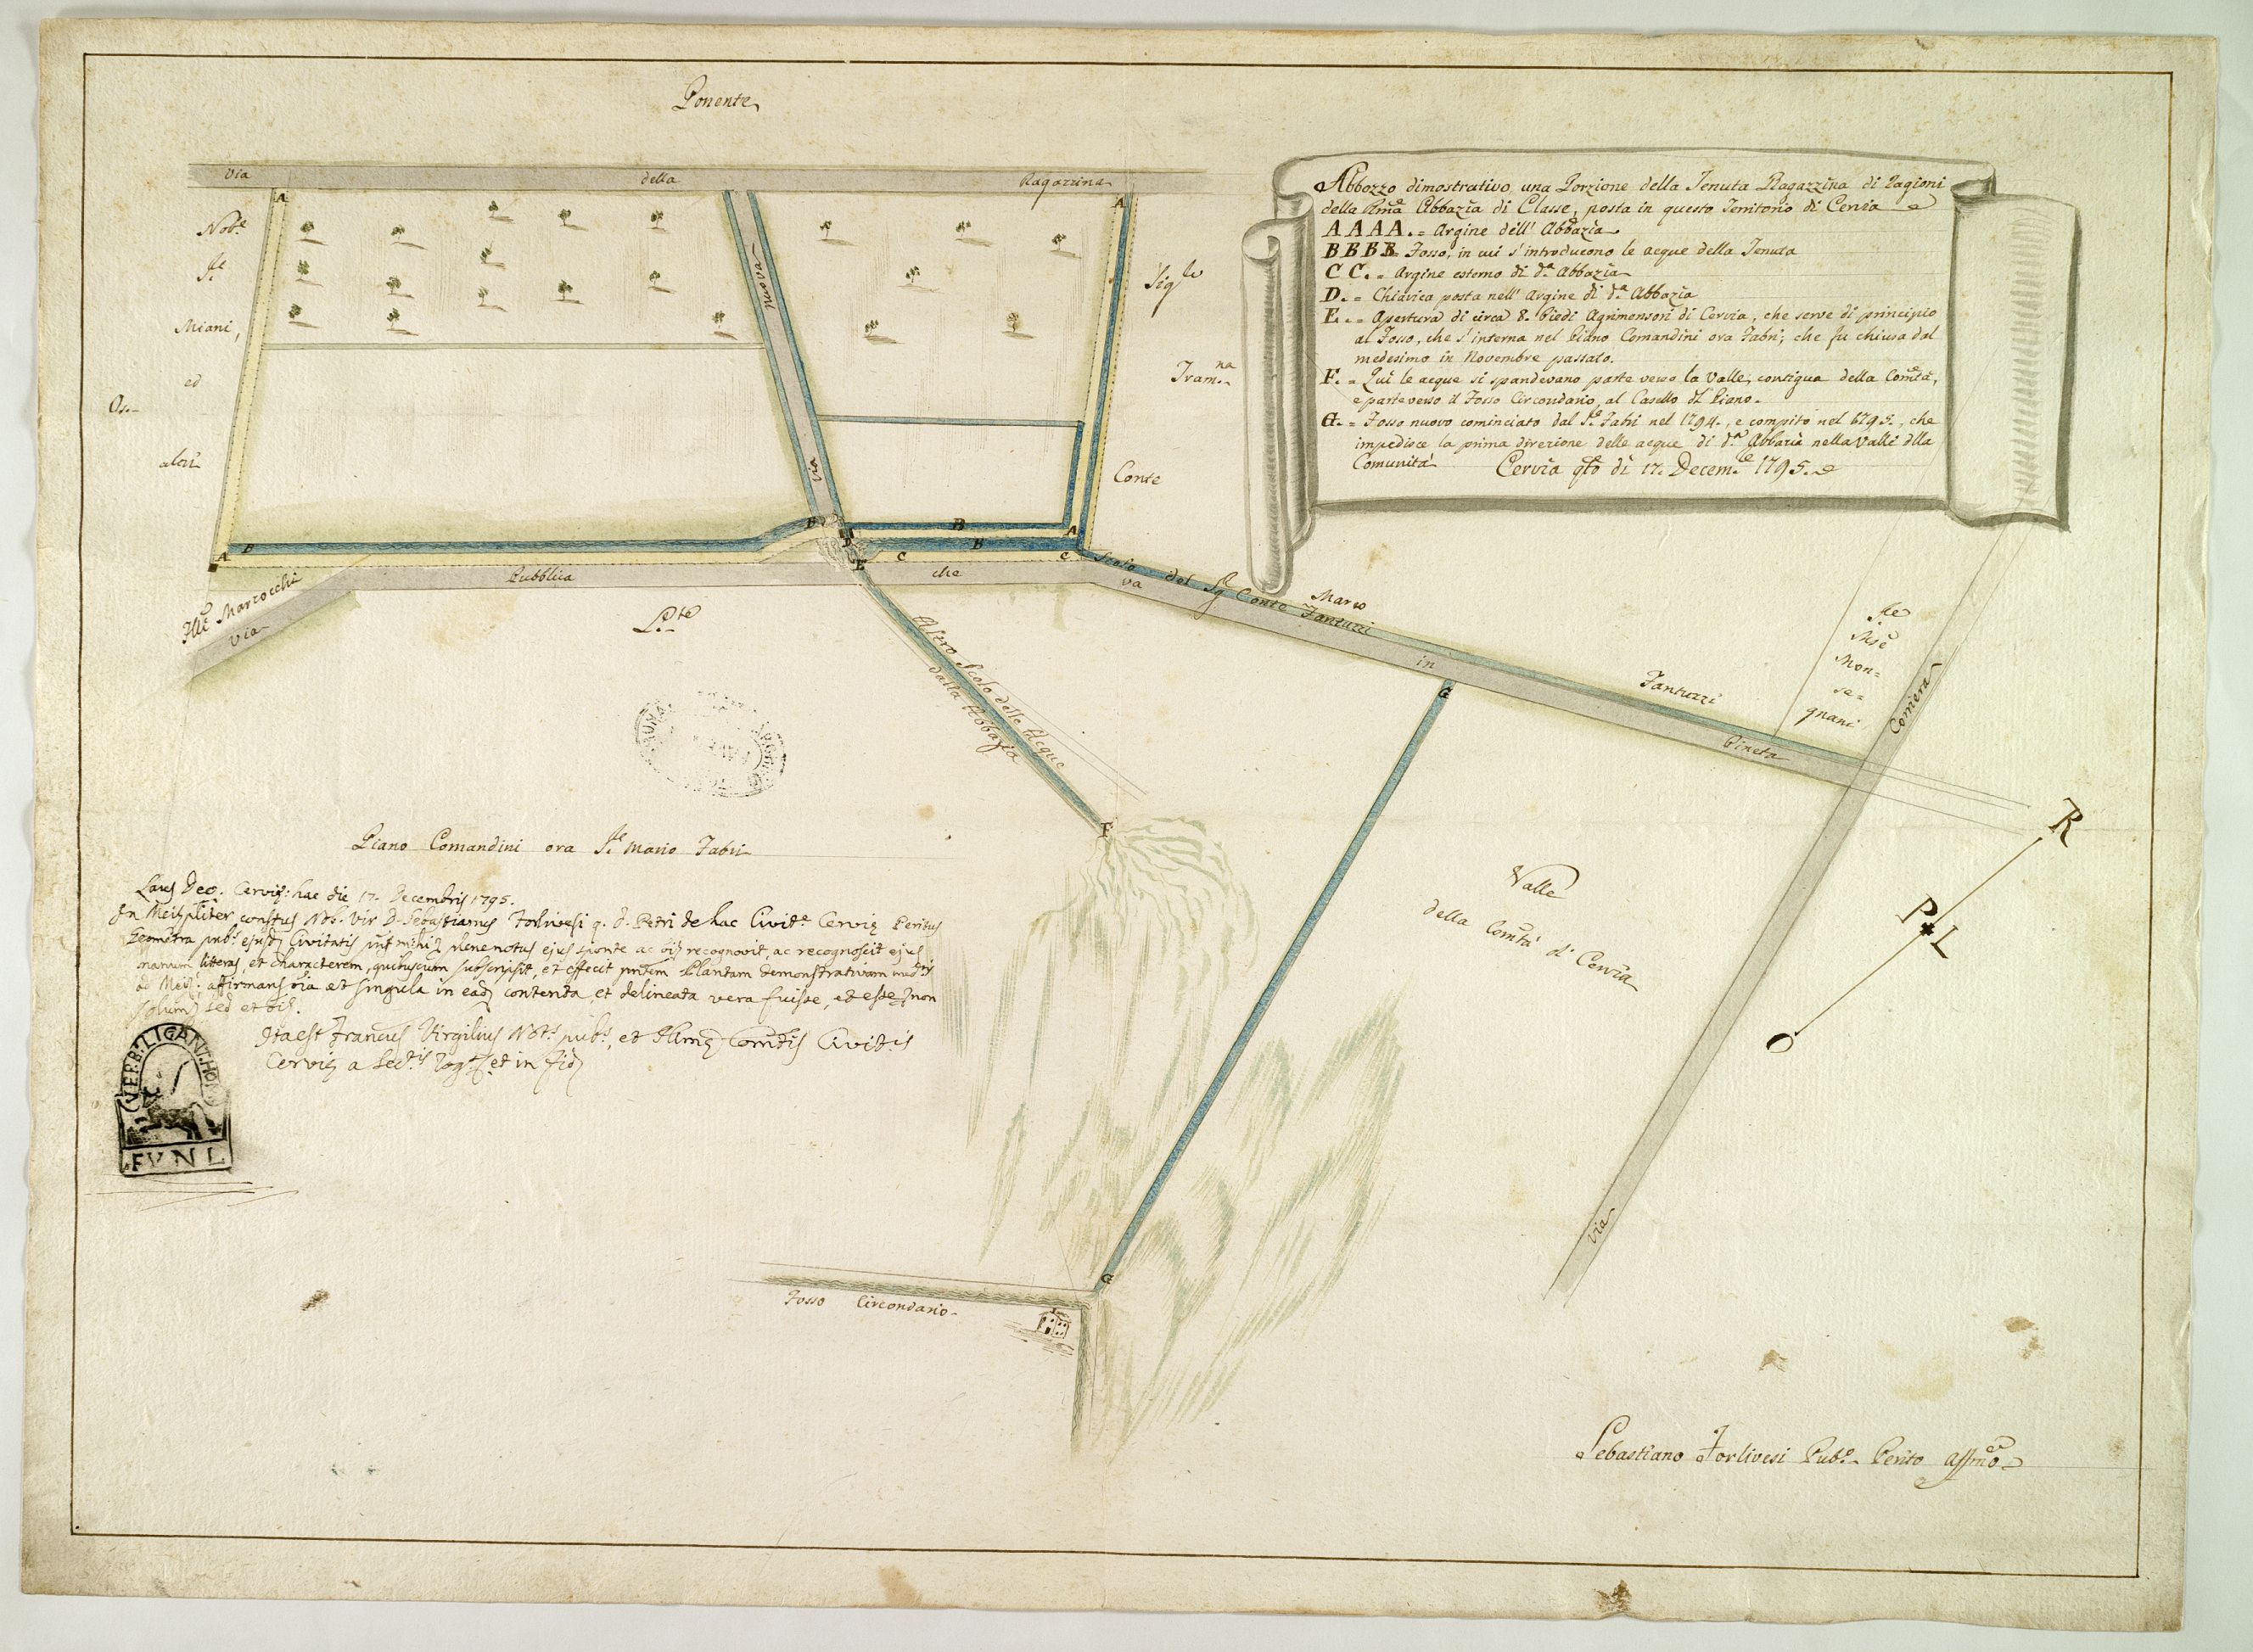 Ponente
Via della Ragazzina
Nob.e
Sr.e
Miani,
ed
altri
Os.
A
A
via nuova
Sig.re
Tram.na
Conte
Abbozzo dimostrativo una Porzione della Tenuta Ragazzina di ragioni
della Rma Abbazia di Classe, posta in questo Territorio di Cervia
A A A A. = Argine dell' Abbazia
B B B B. Fosso, in cui s'introducono le acque della Tenuta
C C. = Argine esterno di d.a Abbazia
D. = Chiavica posta nell' Argine di d.a Abbazia
E. = Apertura di circa 8. Piedi Agrimensori di Cervia, che serve di principio
al Fosso, che s'interna nel Piano Comandini ora Fabri; che fu chiusa dal
medesimo in Novembre passato.
F. = Qui le acque si spandevano parte verso la Valle contigua della Comtà,
e parte verso il Fosso Circondario, al Casello del Piano.
G. = Fosso nuovo cominciato dal Sr. Fabri nel 1794., e compito nel 1795., che
impedisce la prima direzione delle acque di d.a Abbazia nella Valle dlla
Comunità Cervia qto dì 17. Decem.e 1795.
A B
B
B
D
B
A
E
C
C
Via Pubblica che va in Pineta
Marzocchi
L.te
Scolo del Sig Conte Marco Fantuzzi
Fantuzzi
Mon=
se=
gnani
Via Comiera
Altro Scolo delle Acque
dalla Abbazia
F
G
G
Piano Comandini ora Sr.e Mario Fabri
Valle
della Comtà di Cervia
R
P L
O
Laus Deo. Cerviæ: hac die 17. Decembris 1795.
Nob. Vir D. Sebastianus Forlivesi q. D. Petri de hac Civit.e Cerviæ Peritus
Geometra pub.s
manum litteras, et characterem, quibuscum subscripsit, et effecit pntem Plantam demonstrativam
affirmans oia et singula in eadz contenta, et delineata vera fuisse, et esse non
solum sed et
Ita est Francus Virgilius Not.s pub.s, et
Cerviæ a Sec.tis rog.s et in fidz
VERBA LIGANT HOM
FVNL
Fosso Circondario
Sebastiano Forlivesi Pub.o Perito affmo